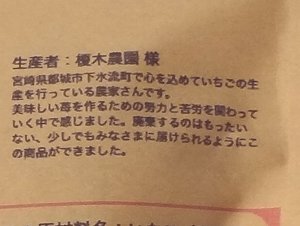 生産者：榎木農園 様
宮崎県都城市下水流町で心を込めていちごの生
産を行っている農家さんです。
美味しい苺を作るための努力と苦労を関わって
いく中で感じました。廃棄するのはもったい
ない、少しでもみなさまに届けられるようにこ
の商品ができました。